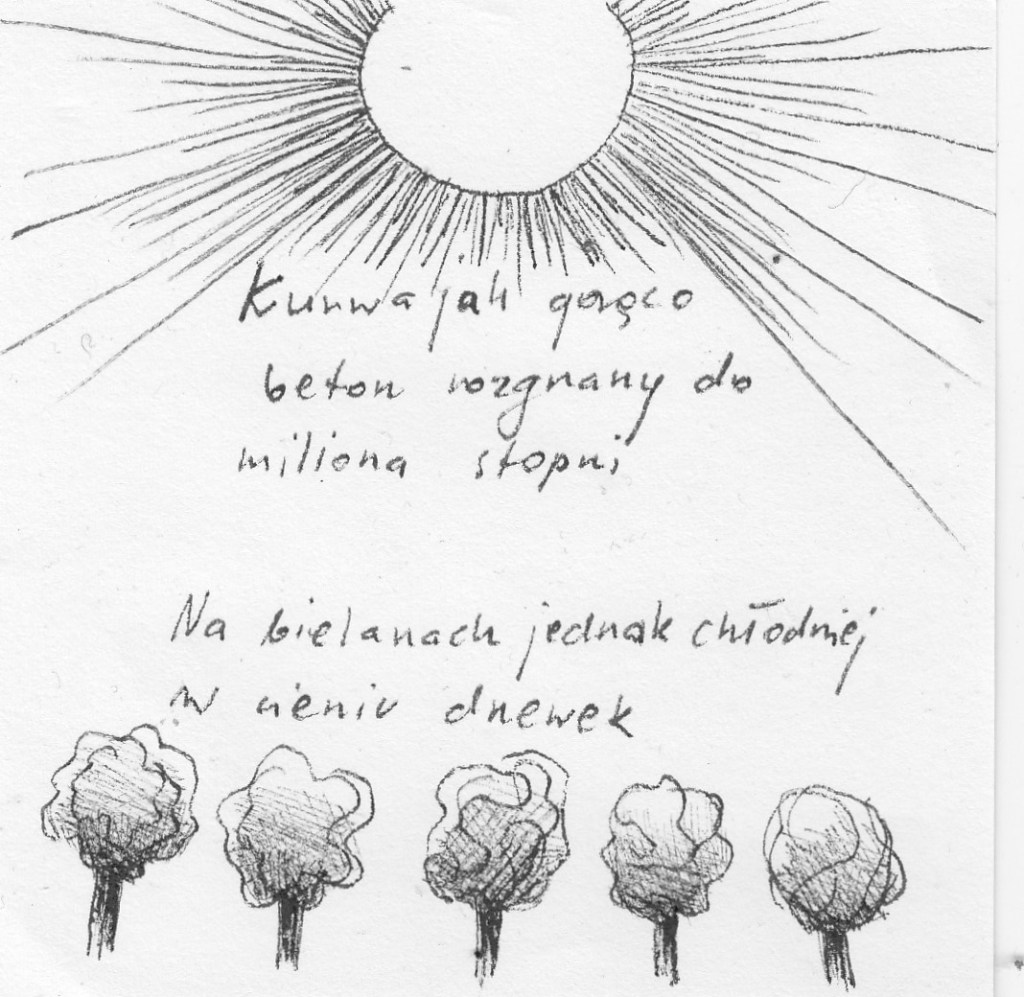 Kurwa jak gorąco
beton rozgrzany do
miliona stopni
Na bielanach jednak chłodniej
w cieniu drzewek